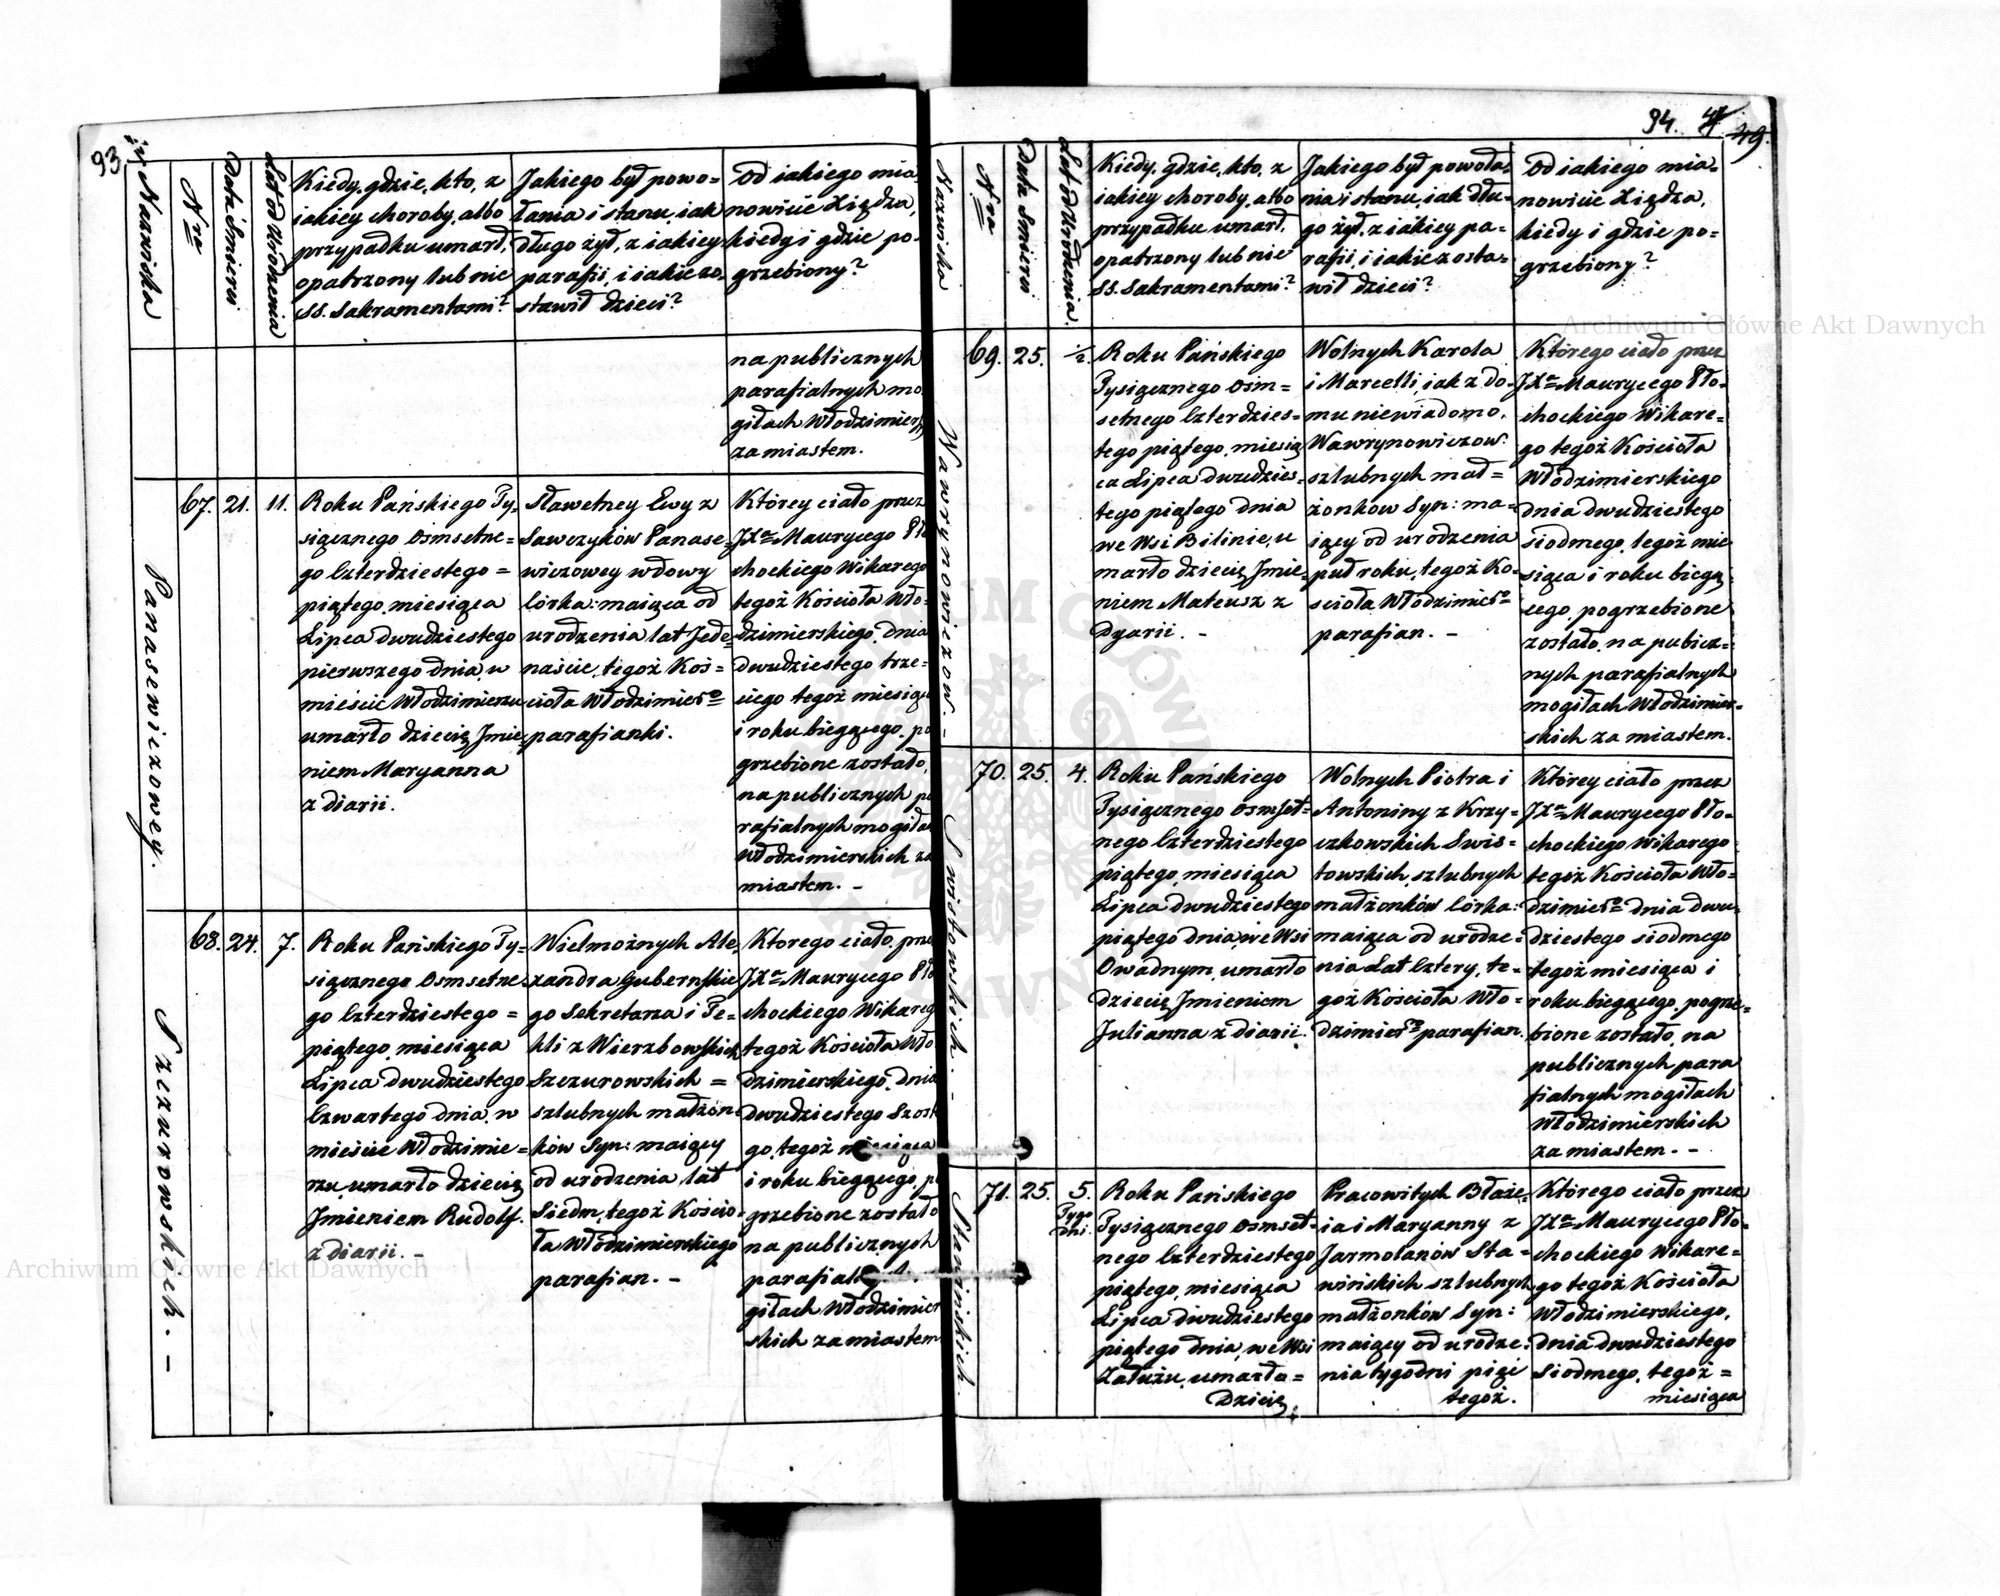 93.
Nazwiska
Nro
Data Śmierci
Lat od Urodzenia
Kiedy, gdzie, kto, z
iakiey choroby, albo
przypadku umarł,
opatrzony lub nie
SS. Sakramentami?
Jakiego był powo=
łania i stanu, iak
długo żył, z iakiey
parafii, i iakie zo.
stawił dzieci?
Od iakiego mia
nowicie Xiędza,
kiedy i gdzie po.
grzebiony?
na publicznych
parafialnych mo
giłach Włodzimier
za miastem.
Panasewiczowey.
67. 21. 11.
Roku Pańskiego Ty=
siącznego Osmsetne=
go Czterdziestego =
piątego, miesiąca
Lipca dwudziestego
pierwszego dnia, w
mieście Włodzimierzu
umarło dziecię Jmie=
niem Maryanna
z diarii.
Sławetney Ewy z
Sawczyków Panase=
wiczowey wdowy
Córka: maiąca od
urodzenia lat Jede=
naście, tegoż Koś=
cioła Włodzimiergo
parafianki.
Którey ciało przez
JXa Maurycego Pło
chockiego Wikarego
tegoż Kościoła Wło=
dzimierskiego, dnia
dwudziestego trze=
ciego tegoż miesiąca
i roku biegącego, po
grzebione zostało,
na publicznych pa
rafialnych mogiłach
Włodzimierskich za
miastem. –
Szczurowskich. –
68. 24. 7.
Roku Pańskiego Ty=
siącznego Osmsetne=
go Czterdziestego =
piątego, miesiąca
Lipca dwudziestego
Czwartego dnia, w
mieście Włodzimie=
rzu, umarło dziecię
Jmieniem Rudolf.
z diarii. –
Wielmożnych Ale,
xandra Gubernskie
go Sekretarza i Te=
kli z Wierzbowskich
Szczurowskich =
szlubnych małżon=
ków Syn: maiący
od urodzenia lat
Siedm, tegoż Kościo.
ła Włodzimierskiego
parafian. –
Ktorego ciało, prze
JXa Maurycego Pło
chockiego Wikareg
tegoż Kościoła Wło
dzimierskiego, dnia
dwudziestego Szost
go, tegoż miesiąca
i roku biegącego, po
grzebione zostało
na publicznych
parafial
giłach Włodzimier
skich za miastem
94. 49.
Nazwiska
Nra
Data Śmierci
Lat od Urodzenia.
Kiedy, gdzie, kto, z
iakiey choroby, albo
przypadku umarł,
opatrzony lub nie
SS. Sakramentami?
Jakiego był powoła=
nia i stanu, iak dłu=
go żył, z iakiey pa=
rafii, i iakie zosta=
wił dzieci?
Od iakiego mia=
nowicie Xiędza,
kiedy i gdzie po=
grzebiony?
Wawrynowiczow. –
69. 25. ½.
Roku Pańskiego
Tysiącznego Osm=
setnego Czterdzies=
tego piątego, miesią
ca Lipca dwudzies=
tego piątego dnia
we Wsi Bilinie, u
marło dziecię Jmie=
niem Mateusz z
Dyarii. –
Wolnych Karola
i Marcelli, iak z do=
mu niewiadomo,
Wawrynowiczow:
szlubnych mał=
żonków Syn: ma=
iący od urodzenia
puł roku, tegoż Ko=
ścioła Włodzimiergo
parafian. –
Którego ciało przez
JXa Maurycego Pło=
chockiego Wikare=
go tegoż Kościoła
Włodzimierskiego
dnia dwudziestego
siodmego, tegoż mie
siąca i roku biegą,
cego, pogrzebione
zostało, na publicz=
nych parafialnych
mogiłach Włodzimier=
skich za miastem.
Swistowskich. –
70. 25. 4.
Roku Pańskiego
Tysiącznego Osmset=
nego Czterdziestego
piątego, miesiąca
Lipca dwudziestego
piątego dnia, we Wsi
Owadnym, umarło
dziecię Jmieniem
Julianna z diarii.
Wolnych Piotra i
Antoniny z Krzy=
czkowskich Swis=
towskich, szlubnych
małżonków Córka:
maiąca od urodze=
nia Lat Cztery, te=
goż Kościoła Wło=
dzimiergo parafian.
Którey ciało przez
JXa Maurycego Pło=
chockiego Wikarego
tegoż Kościoła Wło=
dzimiergo dnia dwu=
dziestego siodmego
tegoż miesiąca i
roku biegącego, pogrze=
bione zostało, na
publicznych para
fialnych mogiłach
Włodzimierskich
za miastem. –
Stawińskich.
71. 25. 5.
Tygo
dni.
Roku Pańskiego
Tysiącznego Osmset=
nego Czterdziestego
piątego, miesiąca
Lipca dwudziestego
piątego dnia, we Wsi
Załużu, umarło =
Dziecię,
Pracowitych Błaże=
ia i Maryanny z
Jarmolanów Sta=
wińskich szlubnych
małżonków Syn:
maiący od urodze=
nia tygodni pięć
tegoż.
Którego ciało przez
JXa Maurycego Pło=
chockiego Wikare=
go tegoż Kościoła
Włodzimierskiego,
dnia dwudziestego
Siodmego, tegoż =
miesiąca
Archiwum Główne Akt Dawnych
Archiwum Główne Akt Dawnych